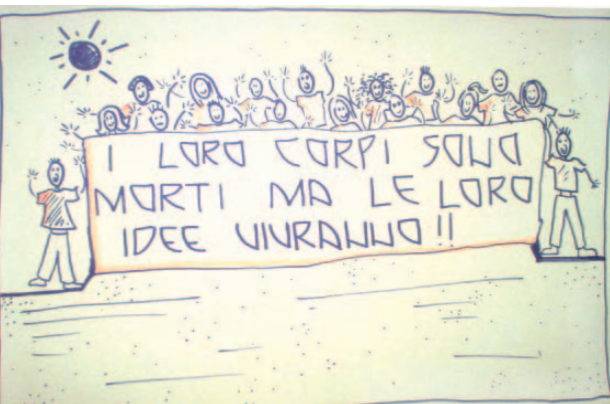 I LORO CORPI SONO
MORTI MA LE LORO
IDEE VIVRANNO!!